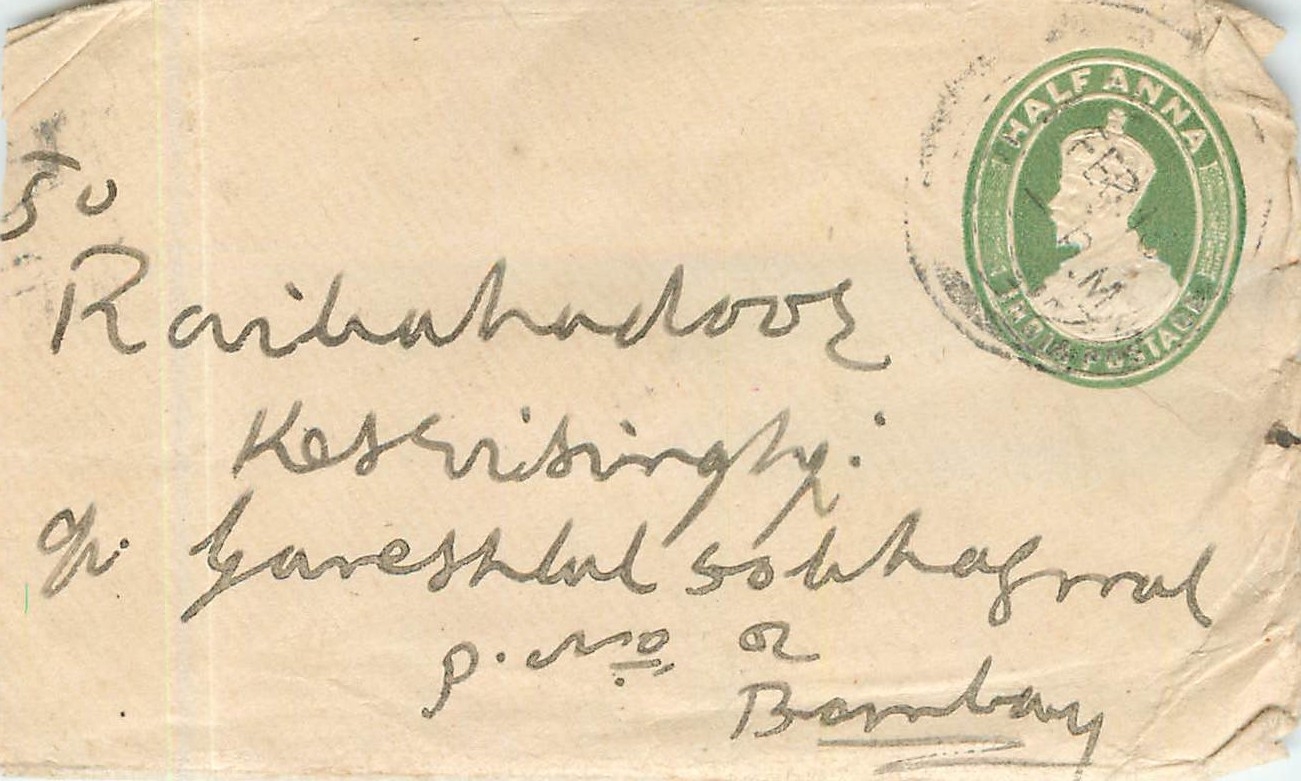 HALF ANNA
INDIA POSTAGE
To
Raibahadoor
Kesrisinghji.
Ganeshlal Sobhagmal
P. No 02
Bombay